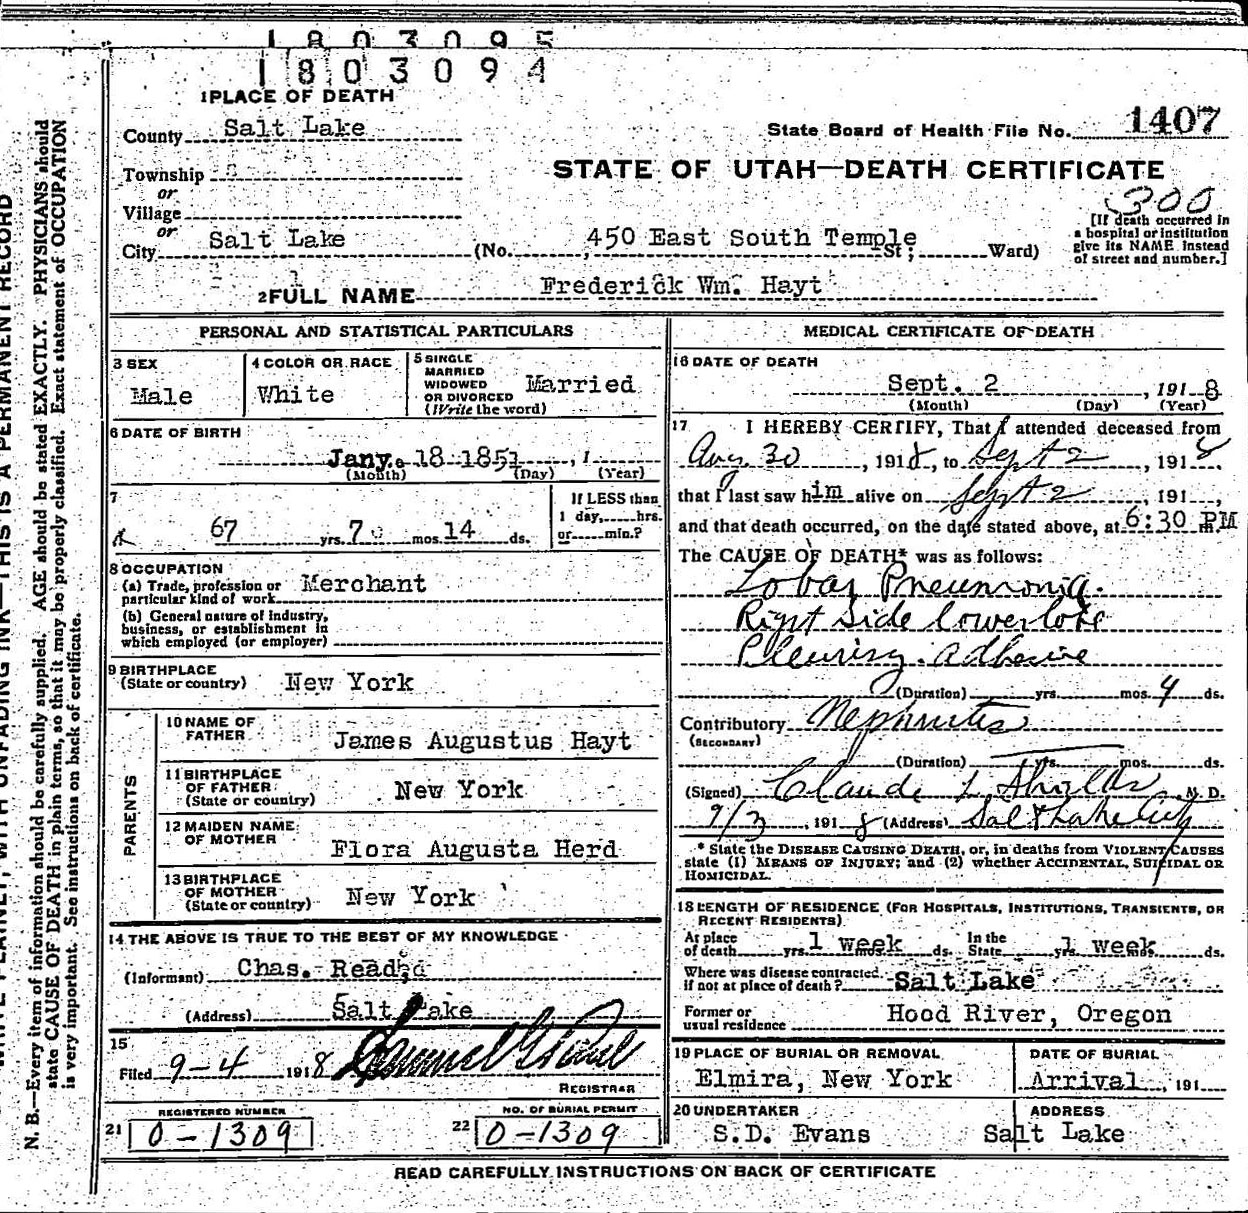 1803095
1803094
1 PLACE OF DEATH
County Salt Lake
State Board of Health File No. 1407
Township
or
Village
or
City Salt Lake (No. 450 East South Temple St; Ward)
STATE OF UTAH—DEATH CERTIFICATE
300
[If death occurred in
a hospital or institution
give its NAME instead
of street and number.]
2 FULL NAME Frederick Wm. Hayt
PERSONAL AND STATISTICAL PARTICULARS
3 SEX
Male
4 COLOR OR RACE
White
5 SINGLE
MARRIED
WIDOWED
OR DIVORCED
(Write the word)
Married
6 DATE OF BIRTH
Jany. 18 1851, 1
(Month) (Day) (Year)
7
67 yrs. 7 mos. 14 ds.
If LESS than
1 day, hrs.
or min.?
8 OCCUPATION
(a) Trade, profession or
particular kind of work Merchant
(b) General nature of industry,
business, or establishment in
which employed (or employer)
9 BIRTHPLACE
(State or country) New York
PARENTS
10 NAME OF
FATHER James Augustus Hayt
11 BIRTHPLACE
OF FATHER
(State or country) New York
12 MAIDEN NAME
OF MOTHER Flora Augusta Herd
13 BIRTHPLACE
OF MOTHER
(State or country) New York
14 THE ABOVE IS TRUE TO THE BEST OF MY KNOWLEDGE
(Informant) Chas. Read
(Address) Salt Lake
15
Filed 9-4 1918
REGISTRAR
REGISTERED NUMBER
21 0-1309
NO. OF BURIAL PERMIT
22 0-1309
MEDICAL CERTIFICATE OF DEATH
16 DATE OF DEATH
Sept. 2, 1918
(Month) (Day) (Year)
17 I HEREBY CERTIFY, That I attended deceased from
Aug 30, 1918, to Sept 2, 1918,
that I last saw him alive on Sept 2, 191 ,
and that death occurred, on the date stated above, at 6:30 PM m.
The CAUSE OF DEATH* was as follows:
Lobar Pneumonia.
Right side lower lobe
Pleurisy. adhesive
(Duration) yrs. mos. 4 ds.
Contributory Nephritis
(SECONDARY)
(Duration) yrs. mos. ds.
(Signed) Claude L Shields M. D.
9/3, 1918 (Address) Salt Lake City
* State the DISEASE CAUSING DEATH, or, in deaths from VIOLENT CAUSES
state (1) MEANS OF INJURY; and (2) whether ACCIDENTAL, SUICIDAL OR
HOMICIDAL.
18 LENGTH OF RESIDENCE (FOR HOSPITALS, INSTITUTIONS, TRANSIENTS, OR
RECENT RESIDENTS)
At place
of death yrs. 1 week mos. ds. In the
State yrs. 1 week mos. ds.
Where was disease contracted
if not at place of death? Salt Lake
Former or
usual residence Hood River, Oregon
19 PLACE OF BURIAL OR REMOVAL
Elmira, New York
DATE OF BURIAL
Arrival, 191
20 UNDERTAKER
S.D. Evans
ADDRESS
Salt Lake
READ CAREFULLY INSTRUCTIONS ON BACK OF CERTIFICATE
WITH UNFADING INK—THIS IS A PERMANENT RECORD
N. B.—Every item of information should be carefully supplied. AGE should be stated EXACTLY. PHYSICIANS should
state CAUSE OF DEATH in plain terms, so that it may be properly classified. Exact statement of OCCUPATION
is very important. See instructions on back of certificate.